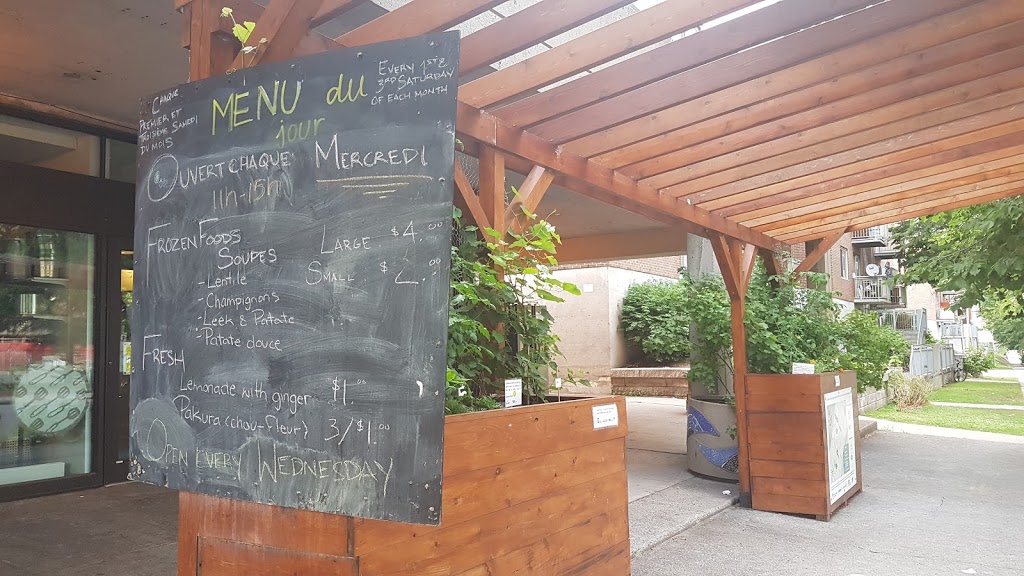 CHAQUE
PREMIER ET
TROISIÈME SAMEDI
DU MOIS
MENU du
jour
EVERY 1ST &
3RD SATURDAY
OF EACH MONTH
OUVERT CHAQUE MERCREDI
11h-15h
FROZEN FOODS
SOUPES
LARGE $4.00
SMALL $2.00
- Lentile
- Champignons
- Leek & Patate
- Patate douce
FRESH
Lemonade with ginger $1.00
Pakura (chou-fleur) 3/$1.00
OPEN EVERY WEDNESDAY